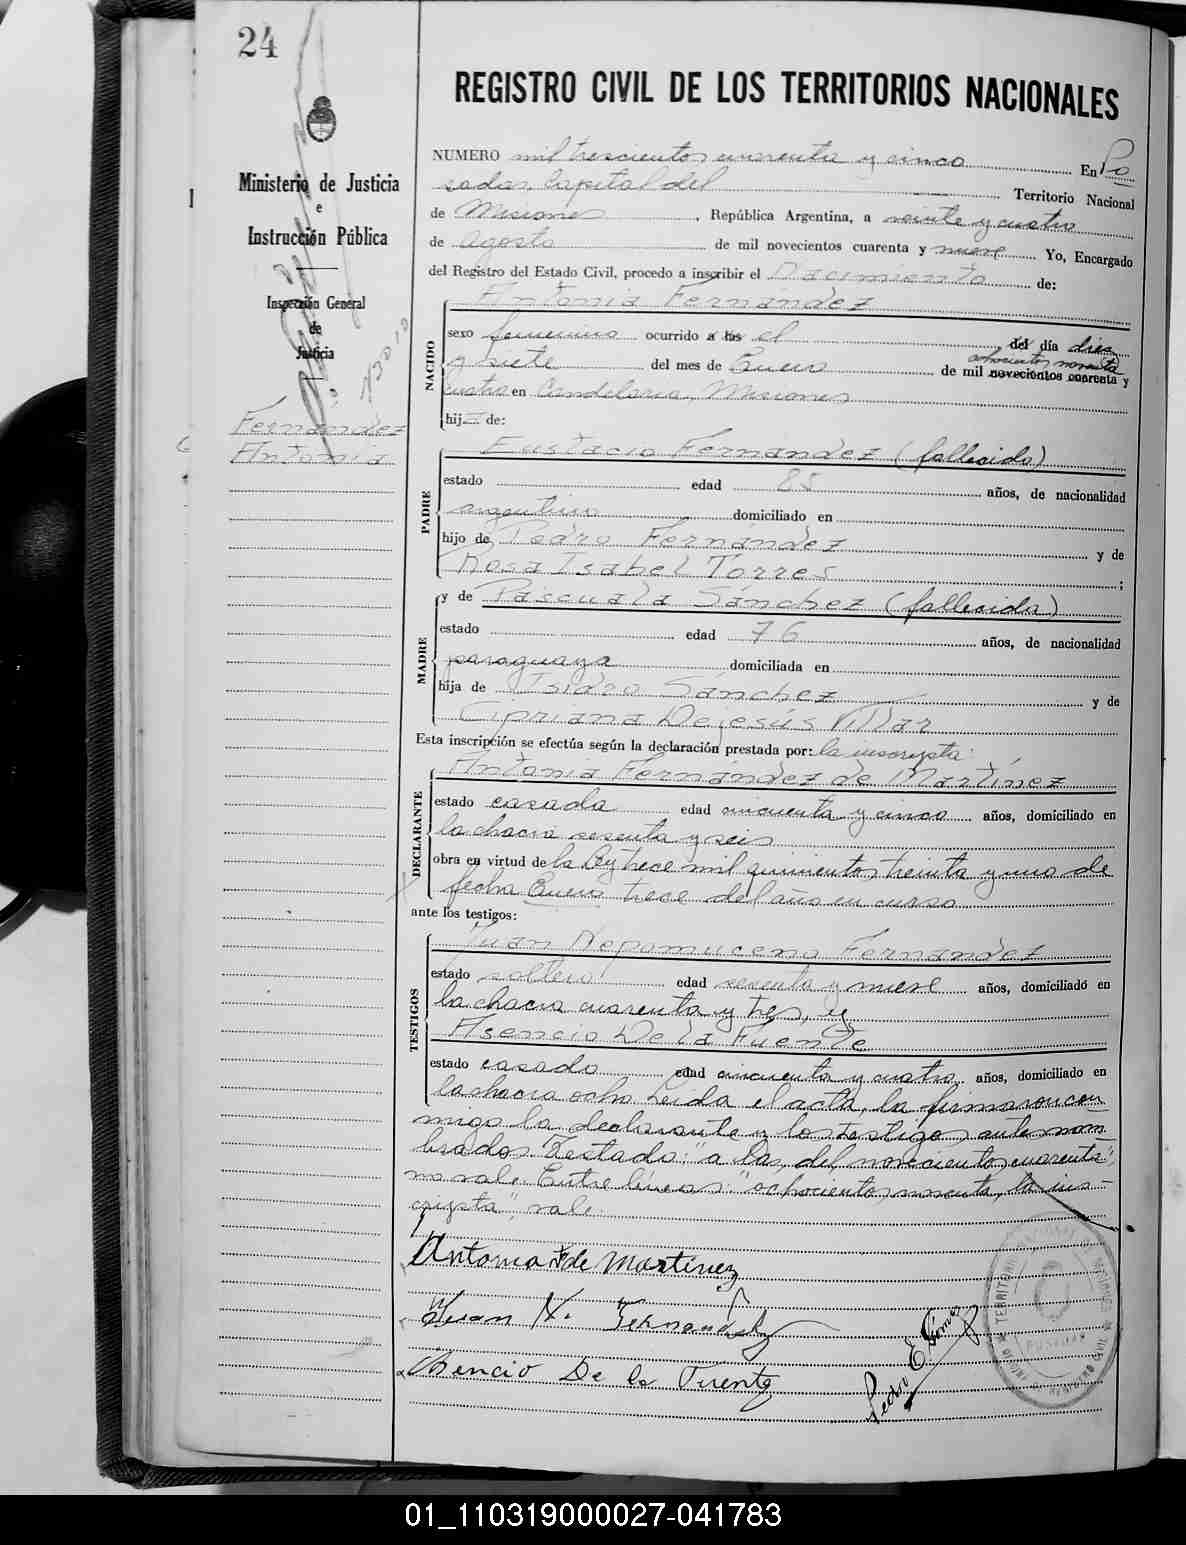 24
REGISTRO CIVIL DE LOS TERRITORIOS NACIONALES
Ministerio de Justicia
e
Instrucción Pública
Inspección General
de
Justicia
Fernández
Antonia
NUMERO mil trescientos cuarenta y cinco En Po
sadas, Capital del Territorio Nacional
de Misiones, República Argentina, a veinte y cuatro
de Agosto de mil novecientos cuarenta y nueve Yo, Encargado
del Registro del Estado Civil, procedo a inscribir el Nacimiento de:
NACIDO
Antonia Fernández
sexo femenino ocurrido a las el del día diez
y siete del mes de Enero de mil novecientos cuarenta y
ochocientos noventa
cuatro en Candelaria, Misiones
hija de:
PADRE
Eustacio Fernández (fallecido)
estado edad 85 años, de nacionalidad
argentino domiciliado en
hijo de Pedro Fernández y de
Rosa Isabel Torres ;
MADRE
y de Pascuala Sánchez (fallecida)
estado edad 76 años, de nacionalidad
paraguaya domiciliada en
hija de Isidro Sánchez y de
Cipriana Dejesús Villar
Esta inscripción se efectúa según la declaración prestada por: la inscripta:
DECLARANTE
Antonia Fernández de Martínez
estado casada edad cincuenta y cinco años, domiciliado en
la chacra sesenta y seis
obra en virtud de la Ley trece mil quinientos treinta y uno de
fecha Enero trece del año en curso
ante los testigos:
TESTIGOS
Juan Nepomuceno Fernandez
estado soltero edad sesenta y nueve años, domiciliado en
la chacra cuarenta y tres, y
Asencio De la Fuente
estado casado edad cincuenta y cuatro años, domiciliado en
la chacra ocho. Leída el acta, la firmaron con
migo la declarante y los testigos antes nom-
brados. Testado: "a las, del, novecientos cuarenta",
no vale. Entre líneas: "ochocientos noventa, la ins-
cripta", vale.
Antonia F de Martinez
Juan N. Fernandez
Asencio De la Fuente
Pedro E. Gómez
POSADAS
01_110319000027-041783